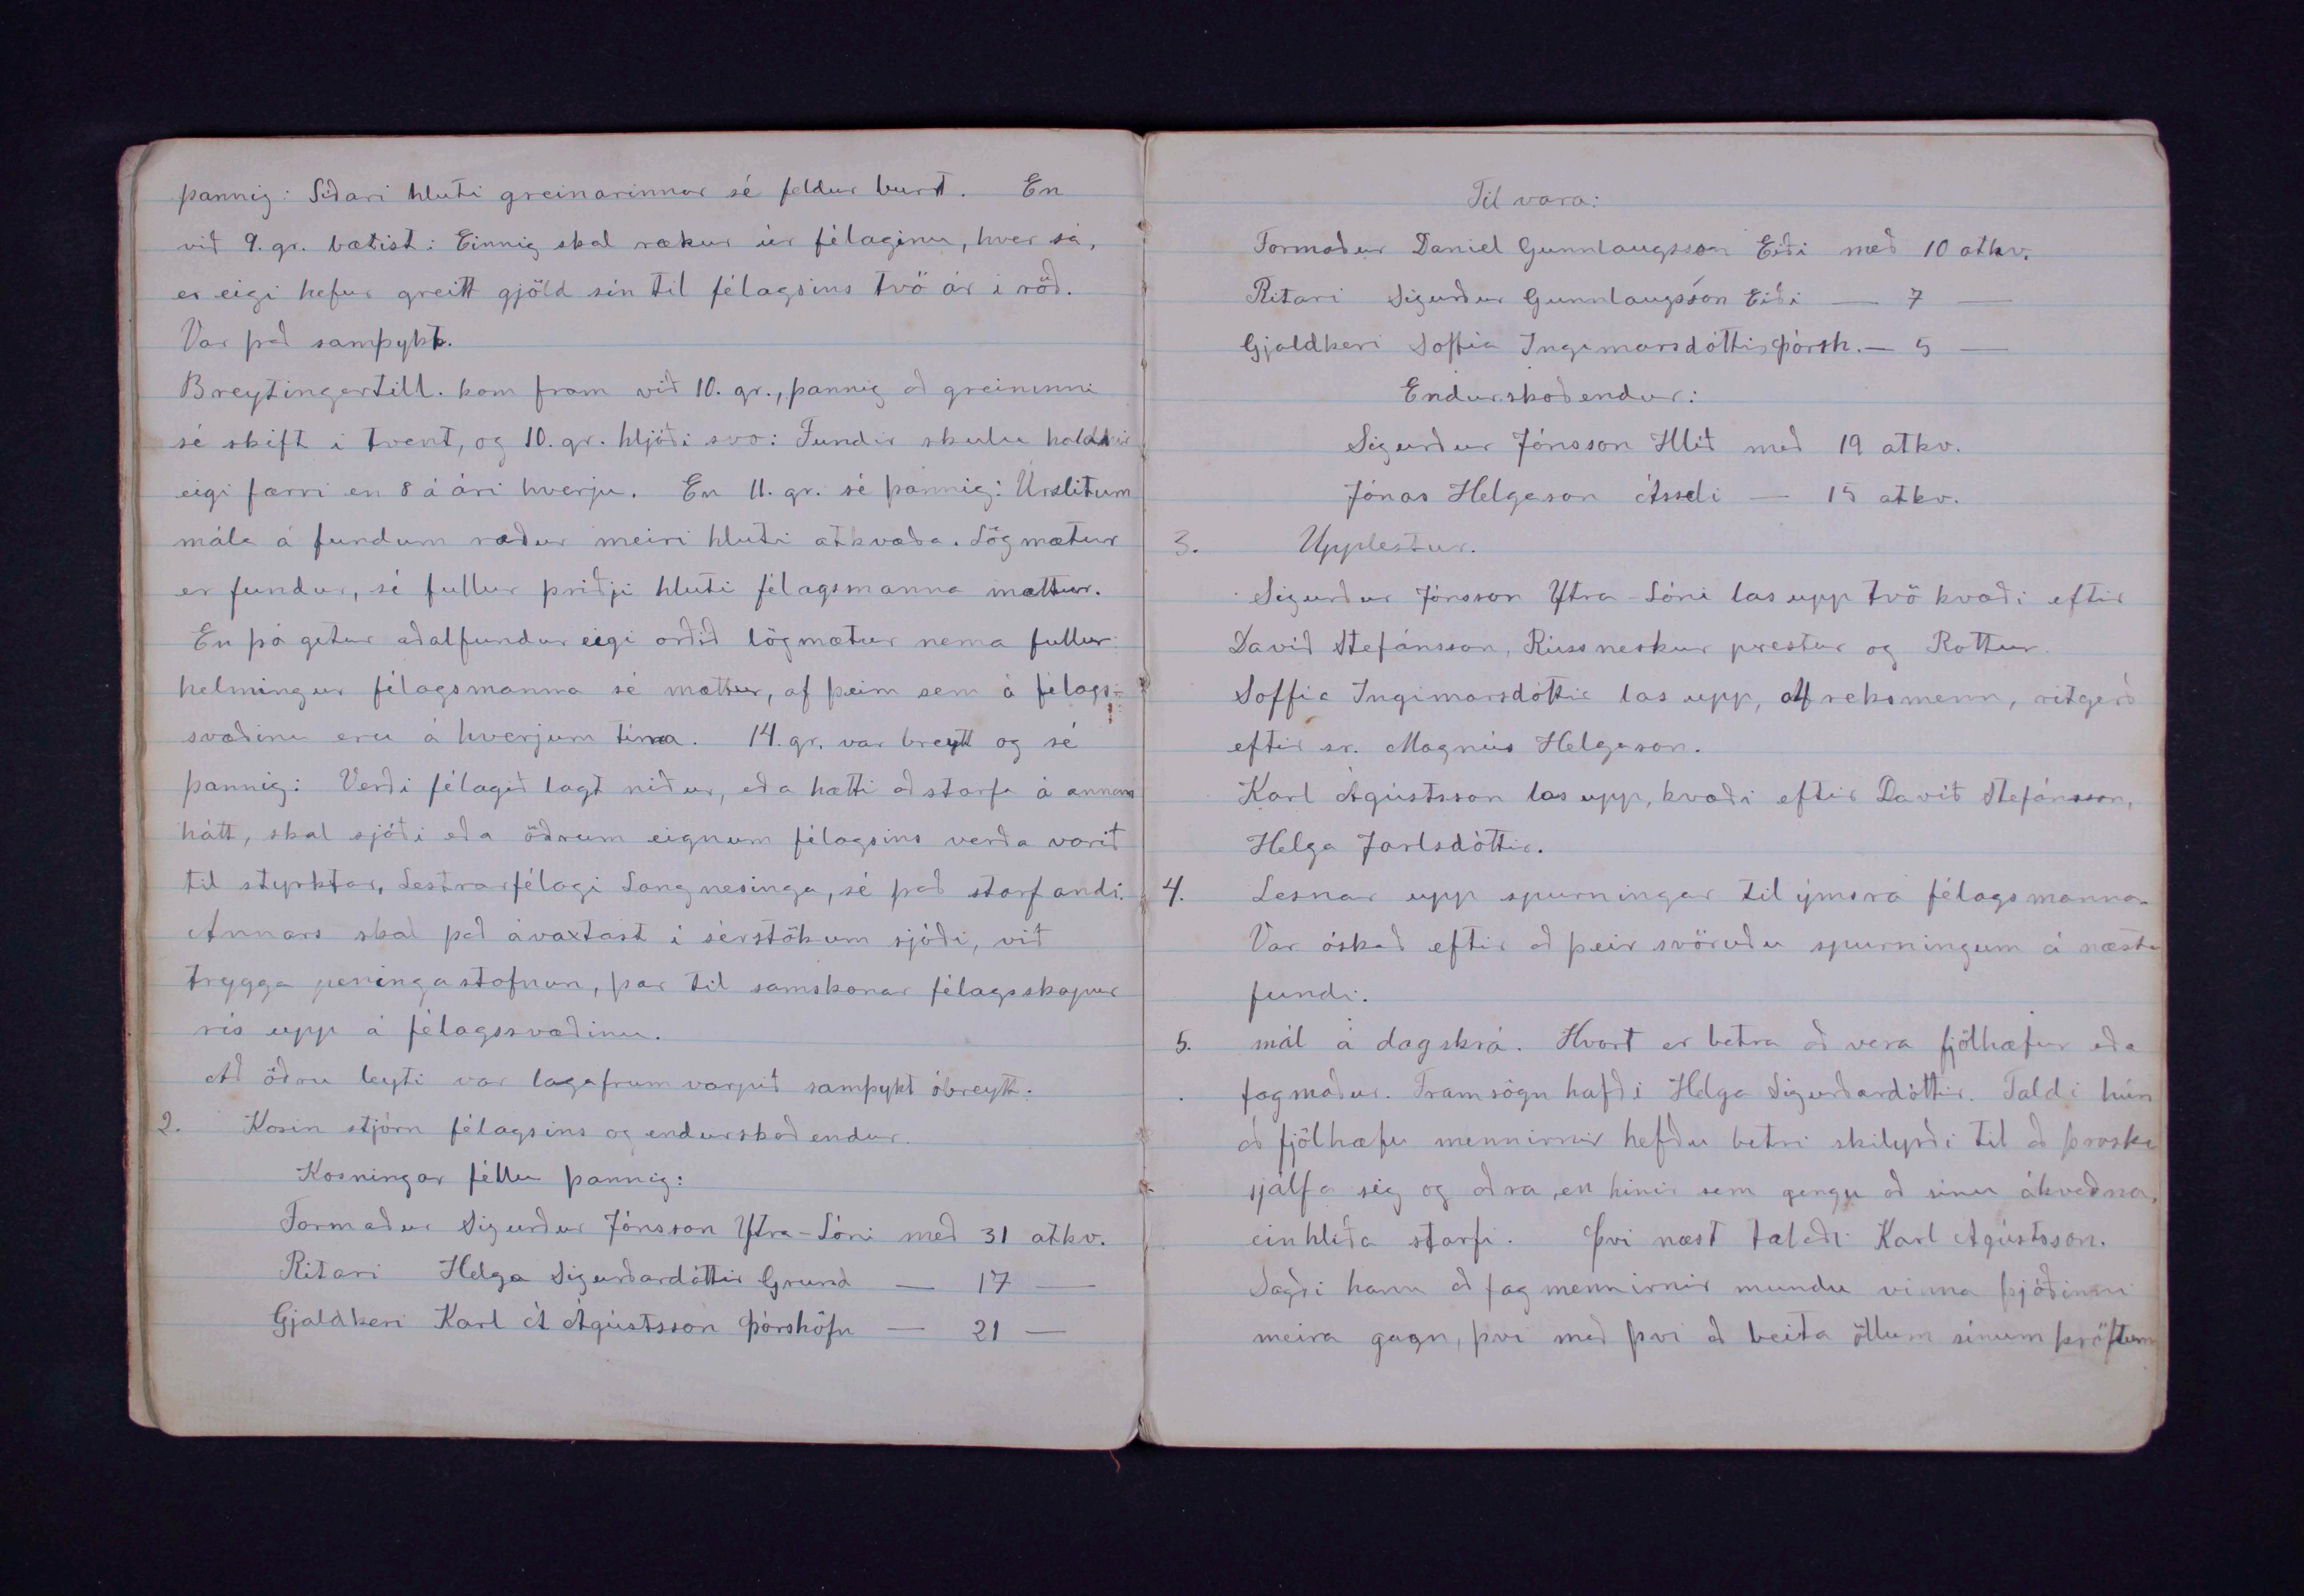 þannig: Síðari hluti greinarinnar sé feldur burt. En
við 9. gr. bætist: Einnig skal rækur úr félaginu, hver sá,
er eigi hefur greitt gjöld sín til félagsins tvö ár í röð.
Var það samþykt.
Breytingartill. kom fram við 10. gr., þannig að greininni
sé skift í tvent, og 10. gr. hljóði svo: Fundir skulu haldnir
eigi færri en 8 á ári hverju. En 11. gr. sé þannig: Úrslitum
mála á fundum ræður meiri hluti atkvæða. Lögmætur
er fundur, sé fullur þriðji hluti félagsmanna mættur.
En þó getur aðalfundur eigi orðið lögmætur nema fullur
helmingur félagsmanna sé mættur, af þeim sem á félags-
svæðinu eru á hverjum tíma. 14. gr. var breytt og sé
þannig: Verði félagið lagt niður, eða hætti að starfa á annan
hátt, skal sjóði eða öðrum eignum félagsins verða varið
til styrktar, Lestrarfélagi Langnesinga, sé það starfandi.
Annars skal það ávaxtast í sérstökum sjóði, við
trygga peningastofnun, þar til samskonar félagsskapur
rís upp á félagssvæðinu.
Að öðru leyti var lagafrumvarpið samþykt óbreytt.
2. Kosin stjórn félagsins og endurskoðendur.
Kosningar féllu þannig:
Formaður Sigurður Jónsson Ytra-Lóni með 31 atkv.
Ritari Helga Sigurðardóttir Grund — 17 —
Gjaldkeri Karl Á Ágústsson Þórshöfn — 21 —
Til vara:
Formaður Daníel Gunnlaugsson Eiði með 10 atkv.
Ritari Sigurður Gunnlaugsson Eiði — 7 —
Gjaldkeri Soffía Ingimarsdóttir Þórsh. — 5 —
Endurskoðendur:
Sigurður Jónsson Hlíð með 19 atkv.
Jónas Helgason Ásseli — 15 atkv.
3. Upplestur.
Sigurður Jónsson Ytra-Lóni las upp tvö kvæði eftir
Davíð Stefánsson, Rússneskur prestur og Rottur.
Soffía Ingimarsdóttir las upp, afreksmenn, ritgerð
eftir sr. Magnús Helgason.
Karl Ágústsson las upp, kvæði eftir Davíð Stefánsson,
Helga Jarlsdóttir.
4. Lesnar upp spurningar til ýmsra félagsmanna.
Var óskað eftir að þeir svöruðu spurningum á næsta
fundi.
5. mál á dagskrá. Hvort er betra að vera fjölhæfur eða
fagmaður. Framsögn hafði Helga Sigurðardóttir. Taldi hún
að fjölhæfu mennirnir hefðu betri skilyrði til að þroska
sjálfa sig og aðra, en hinir sem gengu að sínu ákveðna,
einhliða starfi. Því næst talaði Karl Ágústsson.
Sagði hann að fagmennirnir mundu vinna þjóðinni
meira gagn, því með því að beita öllum sínum kröftum